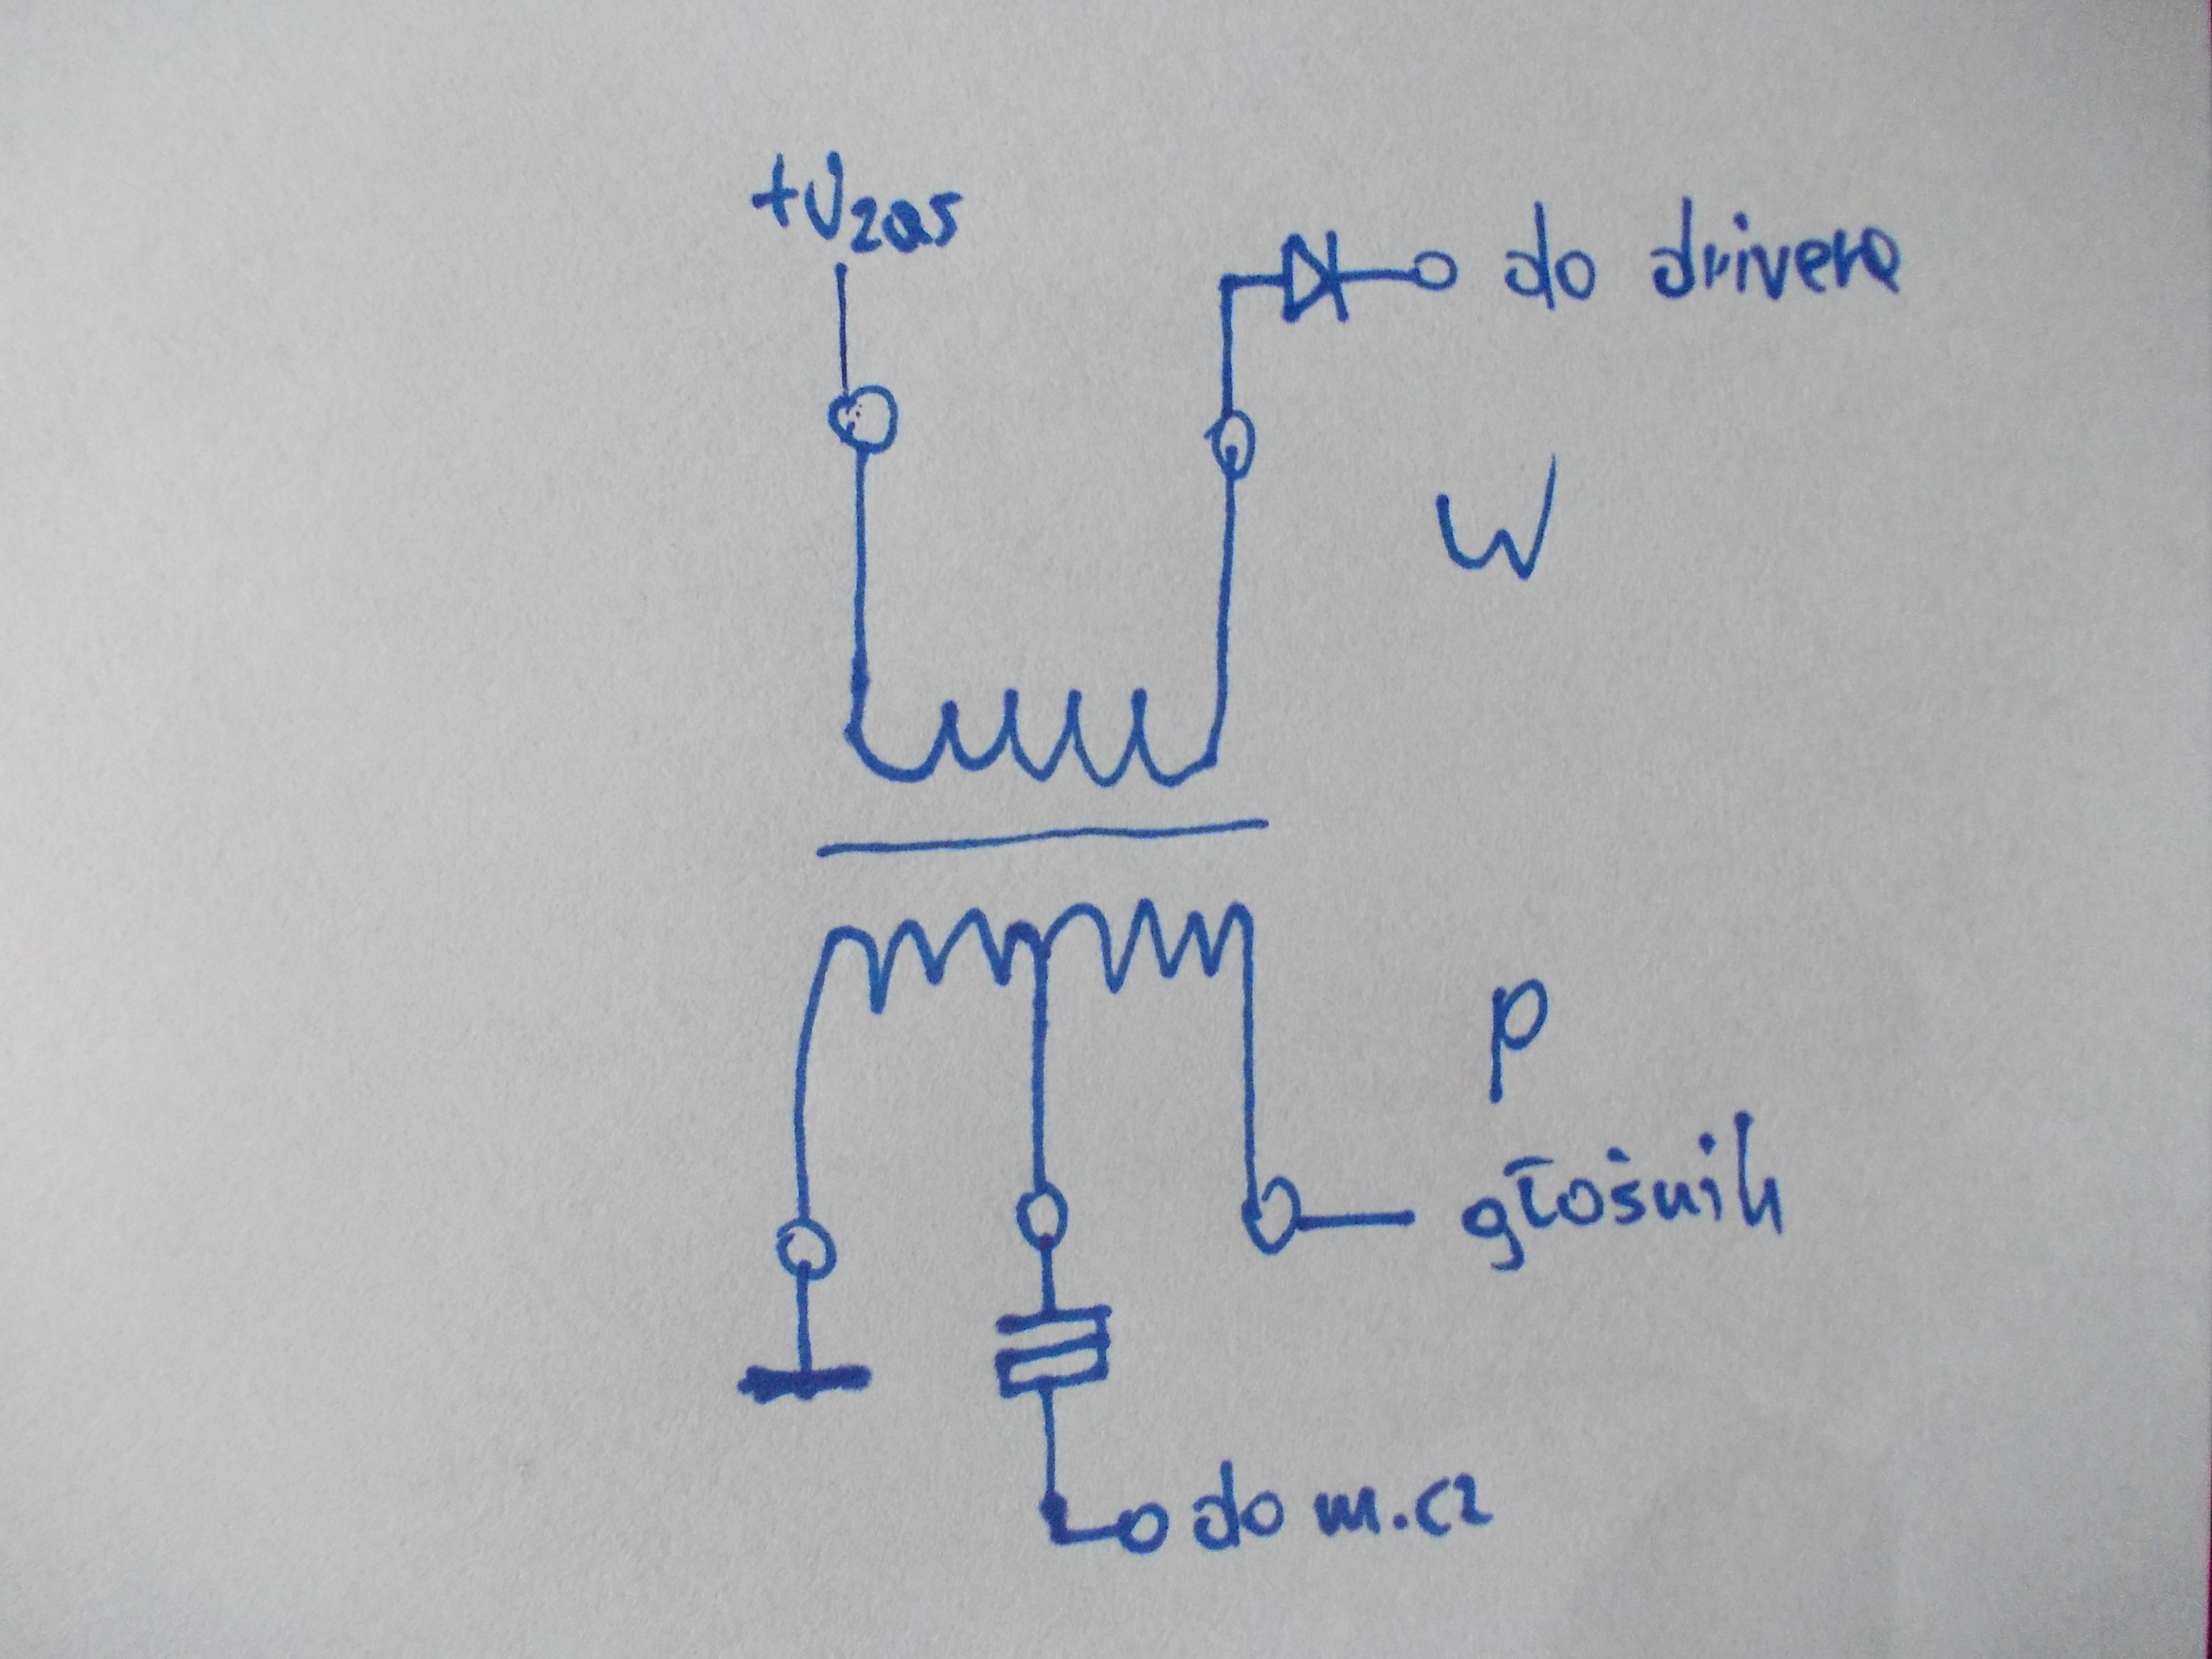 +Uzas
do drivera
W
P
głośnik
do m.cz